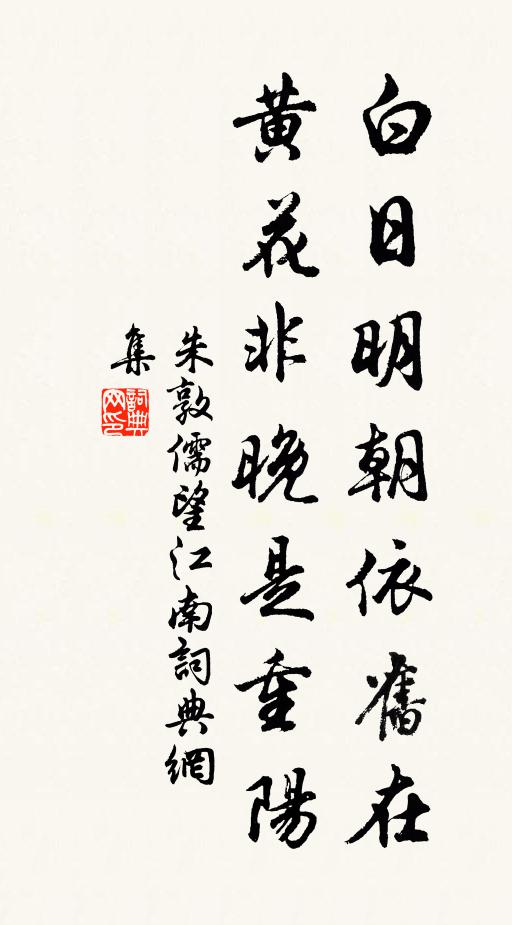 白日明朝依舊在
黃花非晚是重陽
朱敦儒望江南詞典網
集
詞典網印